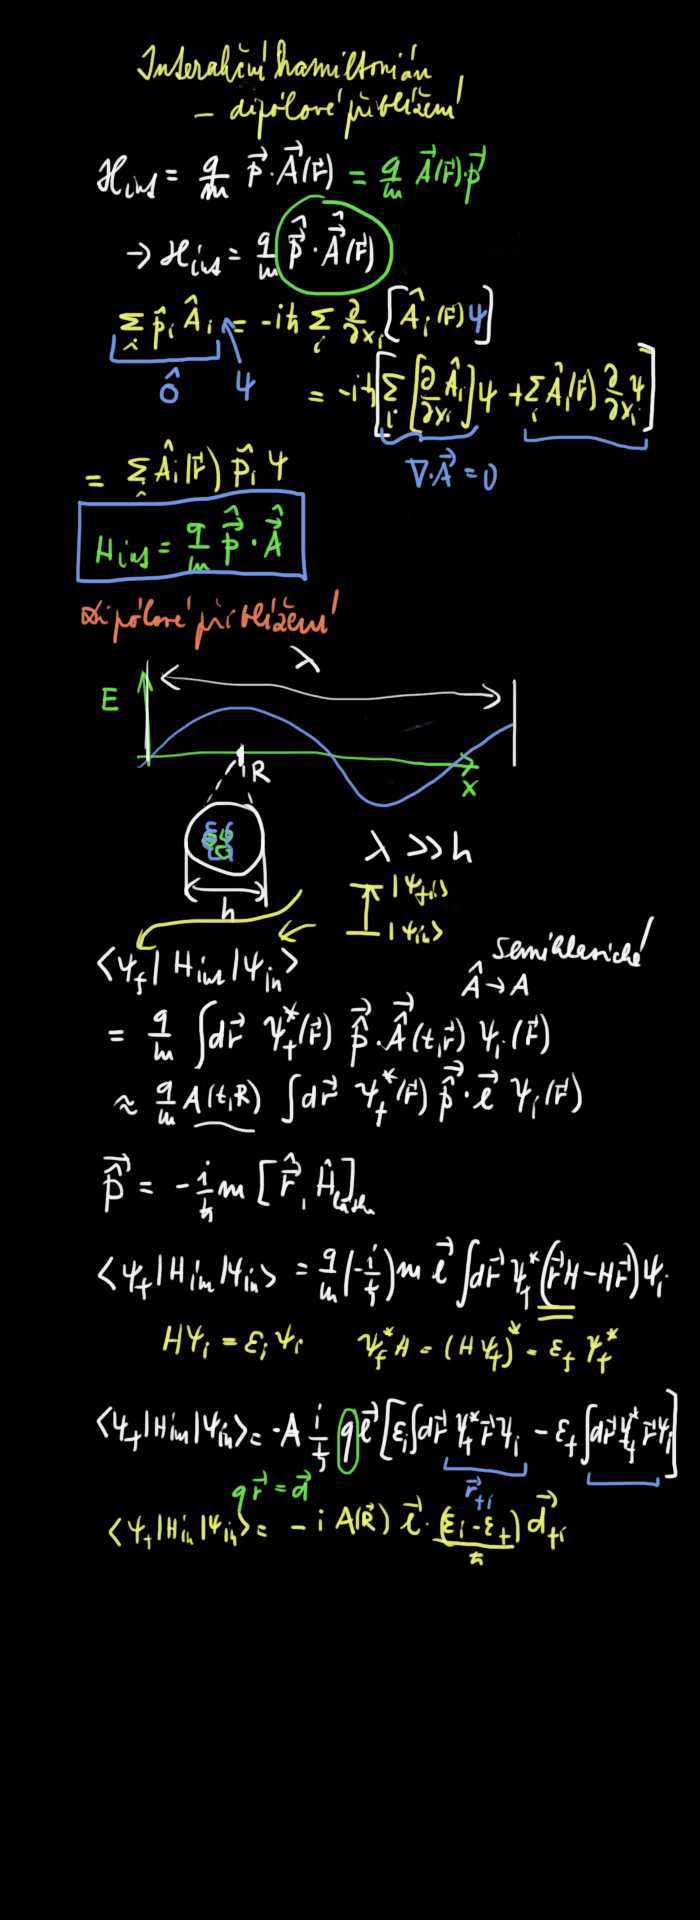 Interakční hamiltonián
– dipólové přiblížení
ℋ_int = q/m p⃗·A⃗(r⃗) = q/m A⃗(r⃗)·p⃗
→ ℋ_int = q/m p̂⃗·Â⃗(r⃗)
∑_i p̂_i Â_i = -iħ ∑_i ∂/∂x_i [Â_i(r⃗)ψ]
Ô ψ = -iħ [∑_i [∂Â_i/∂x_i] ψ + ∑_i Â_i(r⃗) ∂/∂x_i ψ]
= ∑_i Â_i(r⃗) p̂_i ψ ∇·A⃗ = 0
H_int = q/m p̂⃗·Â⃗
Dipólové přiblížení
λ
E
R
x
λ >> h
|ψ_fin>
h |ψ_in>
<ψ_f|H_int|ψ_in> semiklasické
Â → A
= q/m ∫dr⃗ ψ_f*(r⃗) p̂⃗·A⃗(t,r⃗) ψ_i(r⃗)
≈ q/m A(t,R) ∫dr⃗ ψ_f*(r⃗) p̂⃗·e⃗ ψ_i(r⃗)
p̂⃗ = -i/ħ m [r̂⃗, Ĥ_látk.]
<ψ_f|H_int|ψ_in> = q/m (-i/ħ) m e⃗ ∫dr⃗ ψ_f* (r⃗H - Hr⃗) ψ_i
Hψ_i = ε_i ψ_i ψ_f* H = (Hψ_f)* = ε_f ψ_f*
<ψ_f|H_int|ψ_in> = -A i/ħ q e⃗ [ε_i ∫dr⃗ ψ_f* r⃗ ψ_i - ε_f ∫dr⃗ ψ_f* r⃗ ψ_i]
q r⃗ = d⃗ r⃗_fi
<ψ_f|H_in|ψ_in> = -i A(R⃗) e⃗·(ε_i - ε_f)/ħ d⃗_fi